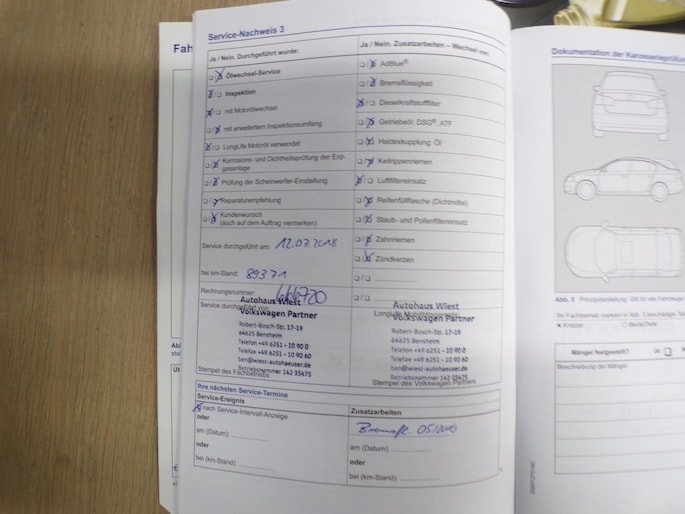 Service-Nachweis 3
Ja / Nein. Durchgeführt wurde:
Ölwechsel-Service
Inspektion
mit Motorölwechsel
mit erweitertem Inspektionsumfang
LongLife Motoröl verwendet
Korrosions- und Dichtheitsprüfung der Erd-
gasanlage
Prüfung der Scheinwerfer-Einstellung
Reparaturempfehlung
Kundenwunsch
(auch auf dem Auftrag vermerken)
Service durchgeführt am: 12.07.2018
bei km-Stand: 89371
Rechnungsnummer:
Service durchgeführt von:
Autohaus Wiest
Volkswagen Partner
Robert-Bosch-Str. 17-19
64625 Bensheim
Telefon +49 6251 - 10 90 0
Telefax +49 6251 - 10 90 60
ben@wiest-autohaeuser.de
Betriebsnummer 142 35475
Stempel des Fachbetriebs
Ja / Nein. Zusatzarbeiten – Wechsel von:
AdBlue®
Bremsflüssigkeit
Dieselkraftstofffilter
Getriebeöl: DSG®, ATP
Haldexkupplung: Öl
Keilrippenriemen
Luftfiltereinsatz
Reifenfüllflasche (Dichtmittel)
Staub- und Pollenfiltereinsatz
Zahnriemen
Zündkerzen
Autohaus Wiest
Volkswagen Partner
Robert-Bosch-Str. 17-19
64625 Bensheim
Telefon +49 6251 - 10 90 0
Telefax +49 6251 - 10 90 60
ben@wiest-autohaeuser.de
Betriebsnummer 142 35475
Stempel des Volkswagen Partners
Ihre nächsten Service-Termine
Service-Ereignis
nach Service-Intervall-Anzeige
oder
am (Datum):
oder
bei (km-Stand):
Zusatzarbeiten
am (Datum):
oder
bei (km-Stand):
Fah
Dokumentation der Karosserieprüfun
Abb. 5 Prinzipdarstellung: Gilt für alle Fahrzeuge
Ihr Fahrbetrieb markiert in Abb. 5 beschädigte
Kratzer
Beule/Delle
Mängel festgestellt? Ja
Beschreibung der Mängel: